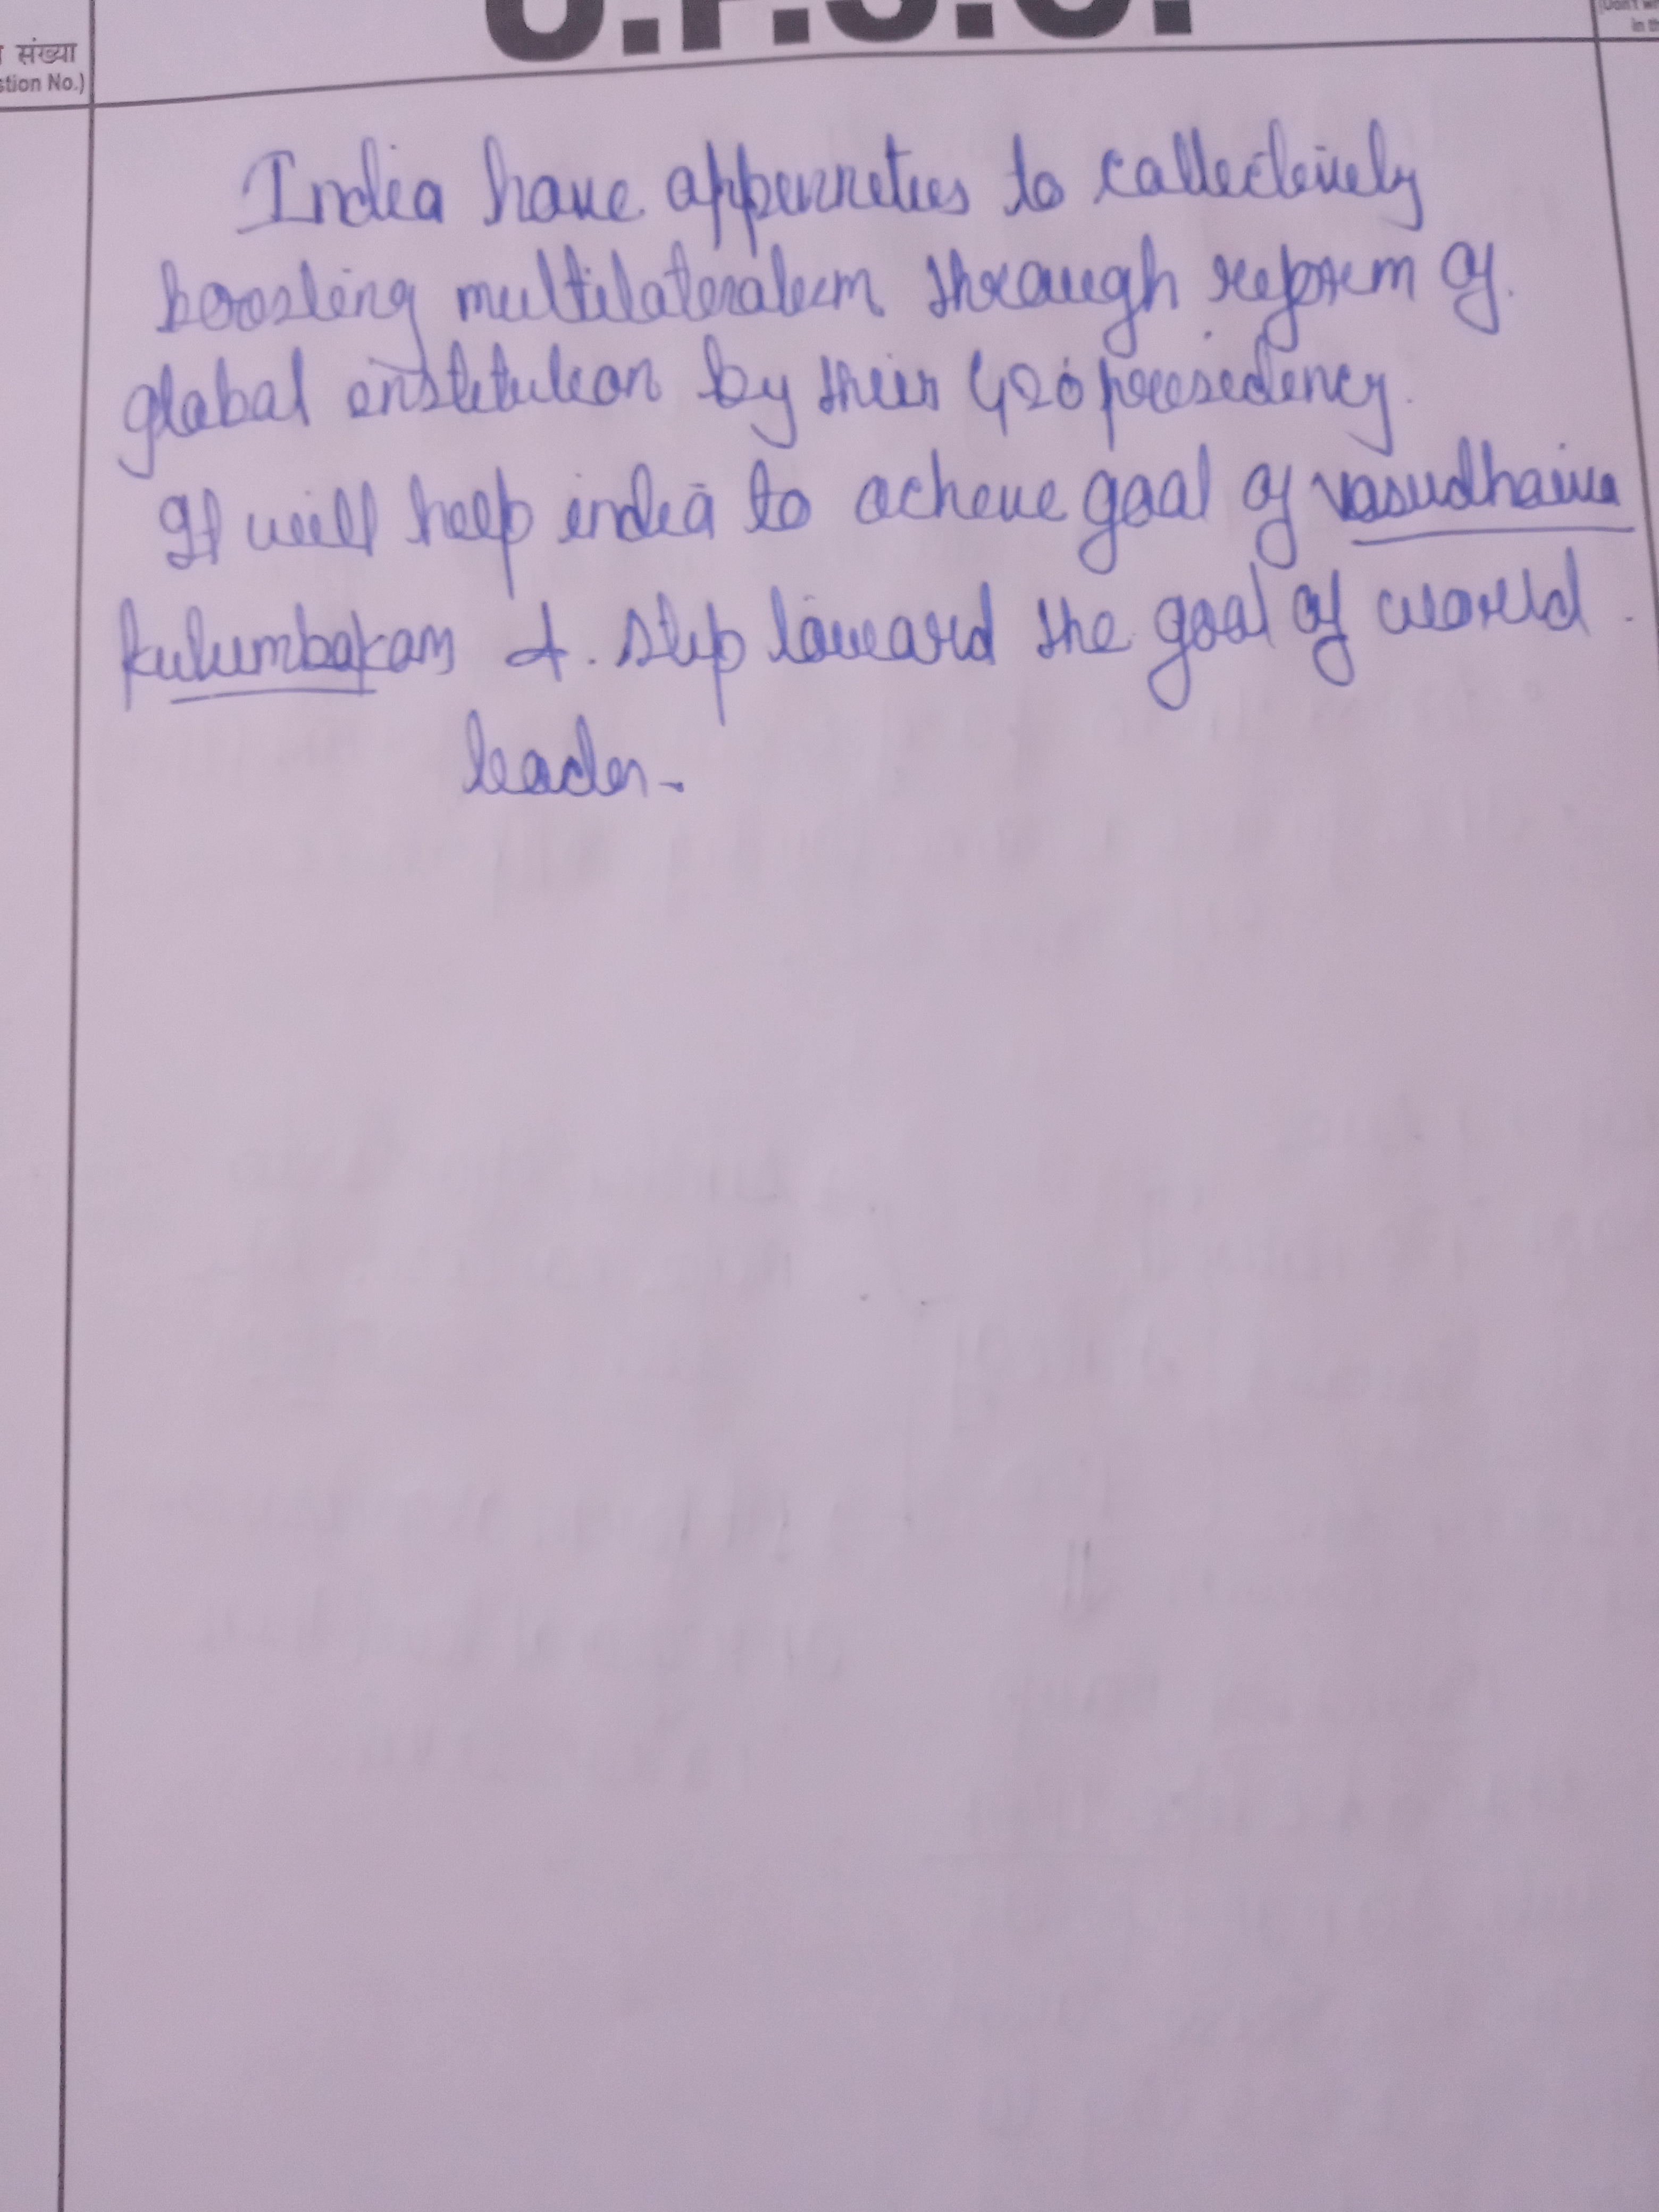 U.P.S.C.
संख्या
stion No.)
(Don't w
in th
India have oppurneties to collectively
boosting multilateralism through reform of
global institution by their G20 presidency.
It will help india to acheve goal of vasudhaiva
kutumbakam & step toward the goal of world
leader.